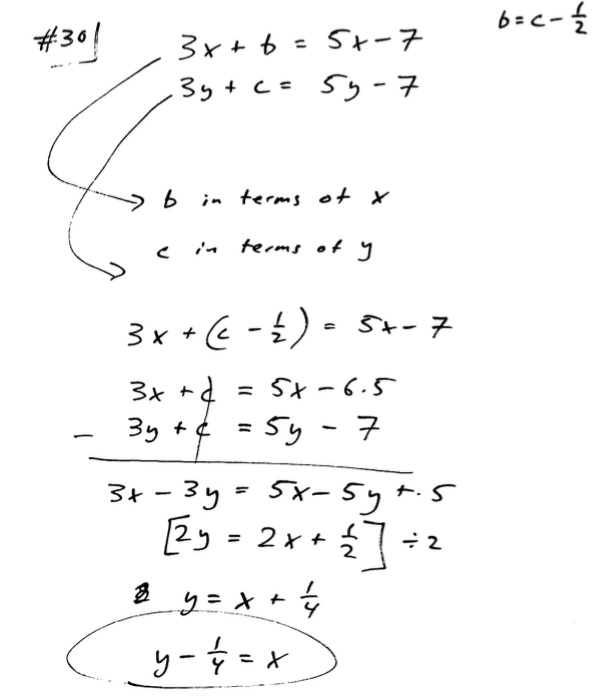 #30
3x + b = 5x - 7
b = c - 1/2
3y + c = 5y - 7
b in terms of x
c in terms of y
3x + (c - 1/2) = 5x - 7
3x + c = 5x - 6.5
- 3y + c = 5y - 7
3x - 3y = 5x - 5y + .5
[2y = 2x + 1/2] ÷ 2
y = x + 1/4
y - 1/4 = x